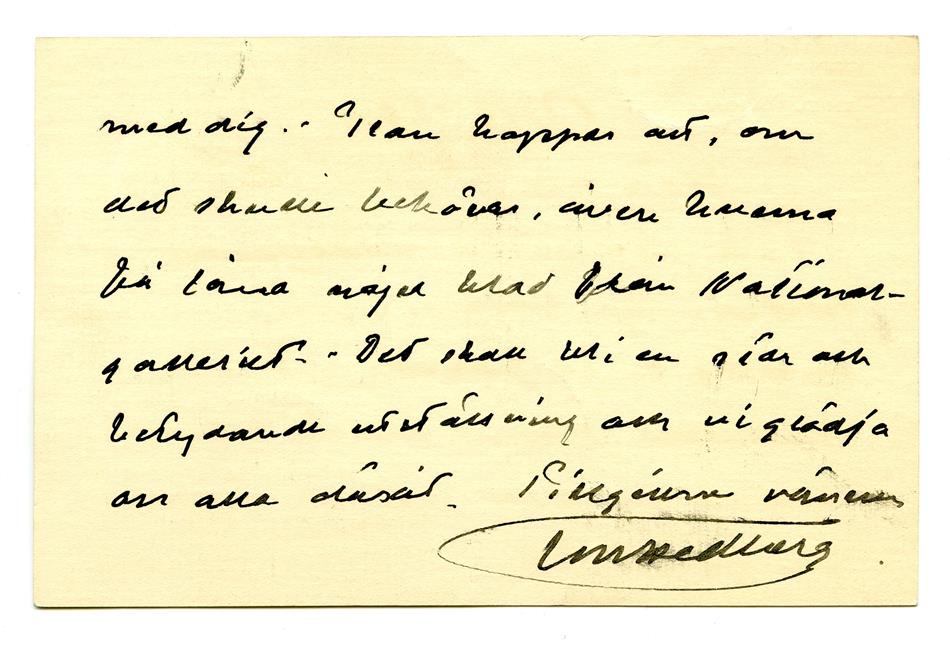 med dig. - Han hoppas att, om
det skulle behövas, även kunna
få låna något blad från National-
galleriet. - Det skall bli en stor och
betydande utställning och vi glädja
oss alla däråt. Tillgifvne vännen